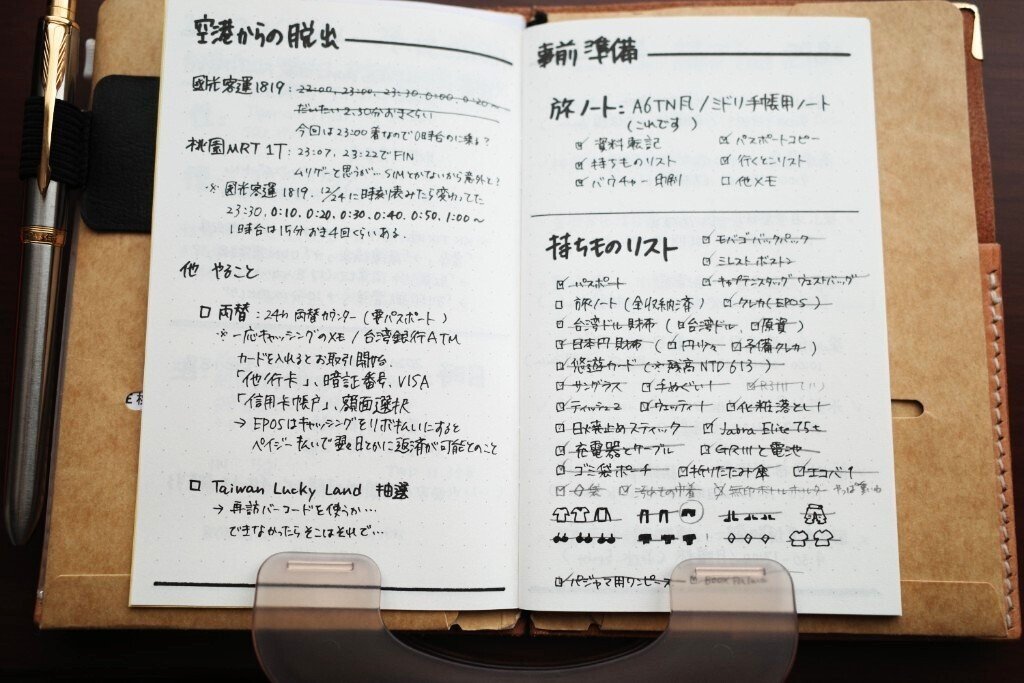 空港からの脱出
國光客運1819: 22:00, 23:00, 23:30, 0:00, 0:20〜
だいたい2,30分おきくらい
今回は23:00着なので0時台のに乗る?
桃園MRT 1T: 23:07, 23:22でFIN
ムリゲーと思うが…SIMとかないから意外と?
※ 國光客運1819. 12/24に時刻表みたら変わってた
23:30, 0:10, 0:20, 0:30, 0:40, 0:50, 1:00〜
1時台は15分おき4回くらいある.
他 やること
□ 両替: 24h 両替カウンター(要パスポート)
※ 一応キャッシングのメモ / 台湾銀行ATM
カードを入れるとお取引開始.
「他行卡」、暗証番号、VISA
「信用卡帳戸」、額面選択
→ EPOSはキャッシングをリボ払いにすると
ペイジー払いで翌日とかに返済が可能とのこと
□ Taiwan Lucky Land 抽選
→ 再訪バーコードを使うか…
できなかったらそこはそれで…
事前準備
旅ノート: A6TN凡/ミドリ手帳用ノート
(これです)
☑ 資料転記 ☑ パスポートコピー
☑ 持ちものリスト ☑ 行くとこリスト
☑ バウチャー印刷 □ 他メモ
持ちものリスト
☑ モバゴ バックパック
☑ ミレスト ボストン
☑ パスポート ☑ キャプテンスタッグ ウェストバッグ
□ 旅ノート(全収納済) ☑ クレカ(EPOS)
☑ 台湾ドル財布(☑ 台湾ドル □ 原資)
☑ 日本円財布(□ 円リカ ☑ 予備クレカ)
☑ 悠遊カード(※ 残高NTD 613)
☑ サングラス ☑ 手ぬぐい1
☑ ティッシュ2 ☑ ウェッティ1 ☑ 化粧落とし1
☑ 日焼止めスティック ☑ Jabra Elite 75t
☑ 充電器とケーブル ☑ GRIIIと電池
☑ ゴミ袋ポーチ ☑ 折りたたみ傘 ☑ エコバ1
無印ボトルホルダー
☑ パジャマ用ワンピース